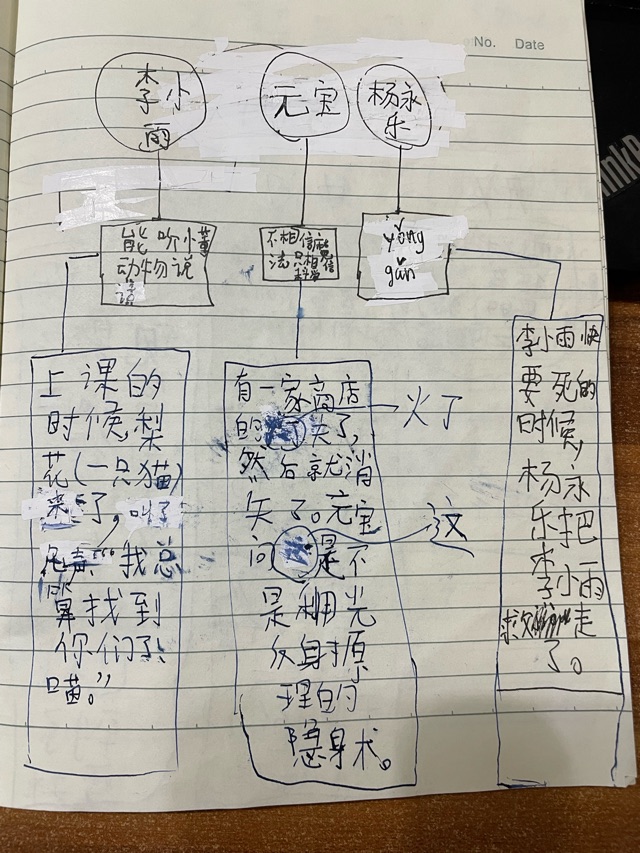 No. Date
李小
雨
元宝
杨永
乐
能听懂
动物说
话
不相信魔
法只相信
科学
yǒng
gǎn
上课的
时候,梨
花(一只猫)
来了,叫了
“我总
算找到
你们了!
喵。”
有一家商店
的火了,
然后就消
失了。元宝
问这是不
是利用光
反射原
理的
隐身术。
火了
这
李小雨快
要死的
时候,
杨永
乐把
李小雨
救走
了。